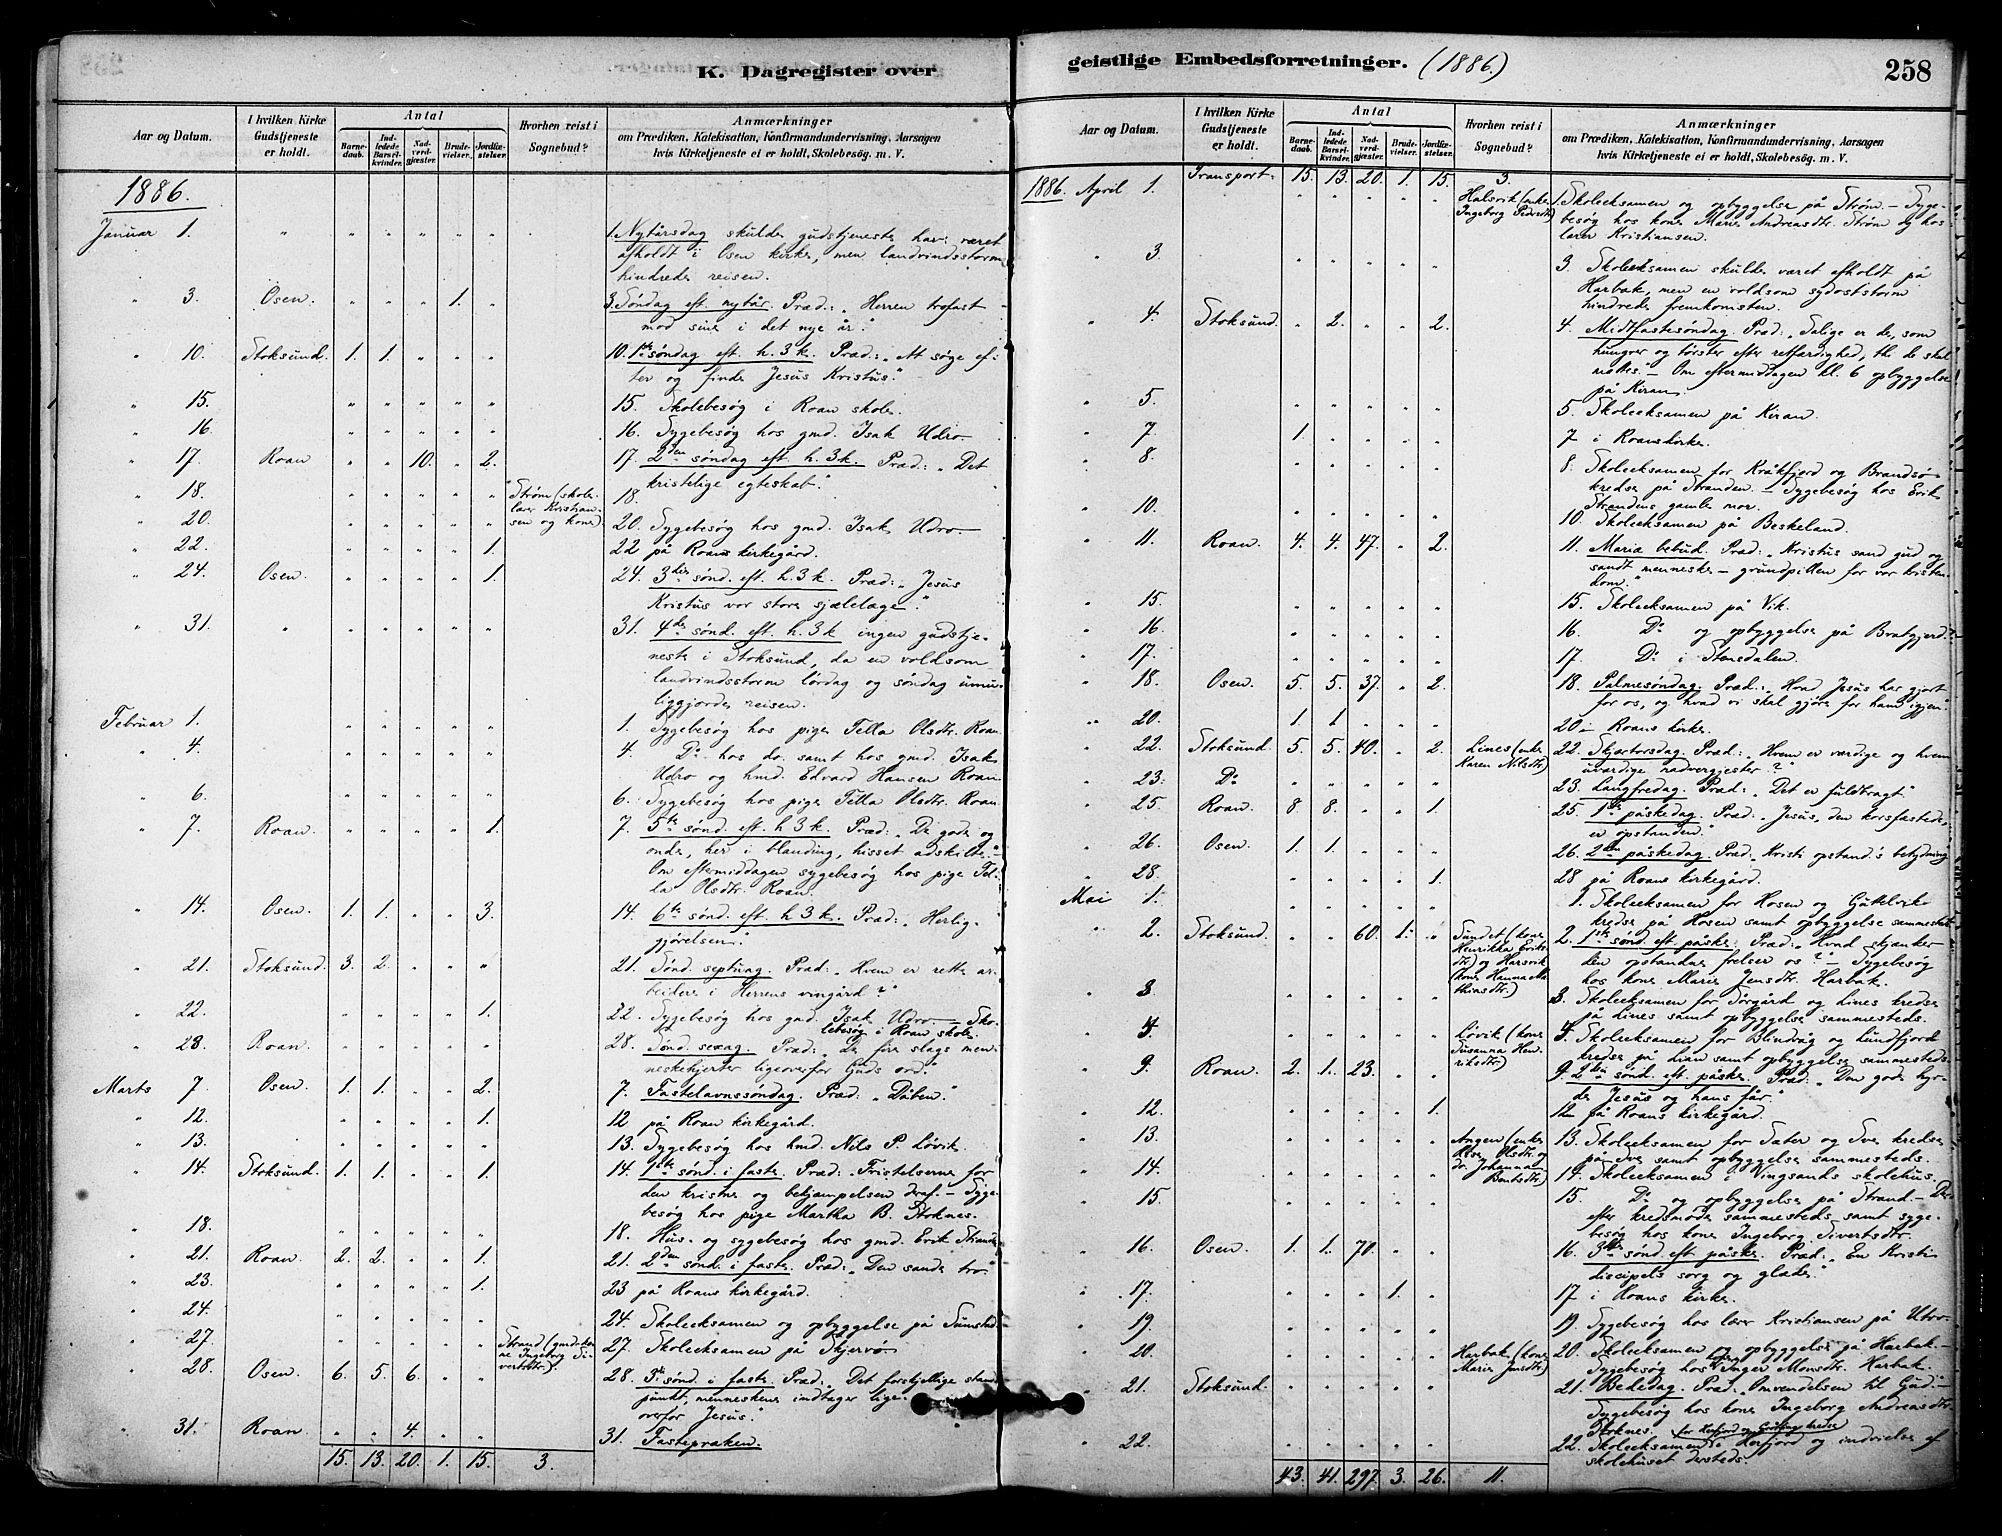 K. Dagregister over
Aar og Datum.
I hvilken Kirke Gudstjeneste er holdt.
Antal
Barnedaab.
Indledede Barselkvinder.
Nadverdgjæster.
Brudevielser.
Jordfæstelser.
Hvorhen reist i Sognebud?
Anmærkninger
om Prædiken, Katekisation, Konfirmandundervisning, Aarsagen
hvis Kirketjeneste ei er holdt, Skolebesøg. m. V.
1886.
Januar 1. " " " " " " 1. Nytårsdag skulde gudstjeneste have været
afholdt i Osen kirke, men landvindsstorm
hindrede reisen.
" 3. Osen. " " " 1. " 3. Søndag eft. nytår. Præd: „Herren trofast
mod sine i det nye år."
" 10. Stoksund. 1. 1. " " " 10. 1ste søndag eft. h. 3 k. Præd: „At søge ef-
ter og finde Jesus Kristus."
" 15. " " " " " 15. Skolebesøg i Roan skole.
" 16. " " " " " 16. Sygebesøg hos gmd. Isak Udro
" 17. Roan " " 10. " 2. 17. 2den søndag eft. h. 3 k. Præd: „Det
kristelige egteskab."
" 18. " " " " " Strøm (skole- 18.
lærer Kristian-
" 20. " " " " " sen og kone) 20. Sygebesøg hos gmd. Isak Udro
" 22. " " " " 1. 22 på Roans kirkegård.
" 24. Osen. " " " " 1. 24. 3die sønd. eft. h. 3 k. Præd: „Jesus
Kristus vor store sjælelæge."
" 31. " " " " " " 31. 4de sønd. eft. h. 3 k ingen gudstje-
neste i Stoksund, da en voldsom
landvindsstorm lørdag og søndag umu-
liggjorde reisen.
Februar 1. " " " " " 1. Sygebesøg hos pige Tella Olsdtr. Roan
" 4. " " " " " 4. Do hos do. samt hos gmd. Isak
Udro og hmd. Edvard Hansen Roan
" 6. " " " " " 6. Sygebesøg hos pige Tella Olsdtr. Roan.
" 7. Roan. " " " " 1. 7. 5te sønd. eft. h. 3 k. Præd: „De gode og
onde, her i blanding, hisset adskilte."
Om eftermiddagen sygebesøg hos pige Tel-
la Olsdtr. Roan.
" 14. Osen. 1. 1. " " 3. 14. 6te sønd. eft. h. 3 k. Præd: „Herlig-
gjørelsen."
" 21. Stoksund. 3. 2. " " " 21. Sønd. septuag. Præd: „Hvem er rette ar-
beidere i Herrens vingård?"
" 22. " " " " 1. 22. Sygebesøg hos gmd. Isak Udro — Sko-
lebesøg i Roan skole.
" 28. Roan. " " " " " 28. Sønd. sexag. Præd: „De fire slags men-
neskehjerter ligeoverfor Guds ord."
Marts 7. Osen. 1. 1. " " 2. 7. Fastelavnssøndag. Præd: „Dåben."
" 12. " " " " 1. 12 på Roan kirkegård.
" 13. " " " " " 13. Sygebesøg hos hmd. Nils P. Løvik.
" 14. Stoksund. 1. 1. " " 1. 14. 1ste sønd. i faste. Præd: „Fristelserne for
den kristne og bekjæmpelsen deraf." — Syge-
besøg hos pige Martha B. Stoknes.
" 18. " " " " " 18. Hus- og sygebesøg hos gmd. Erik Strand
" 21. Roan. 2. 2. " " 1. 21. 2den sønd. i faste. Præd: „Den sande tro."
" 23. " " " " 1. 23 på Roans kirkegård.
" 24. " " " " " 24. Skoleeksamen og opbyggelse på Sumstad.
" 27. " " " " " Strand (gmdsko- 27. Skoleeksamen på Skjervø
ne Ingeborg Si-
" 28. Osen. 6. 5. 6. " " vertsdtr.) 28. sønd. i faste. Præd: „Det forskjellige stand-
punkt, menneskene indtager lige-
overfor Jesus."
" 31. Roan. " " 4. " " 31. Fastepræken.
15. 13. 20. 1. 15. 3.
geistlige Embedsforretninger. (1886.)
258
Aar og Datum.
I hvilken Kirke Gudstjeneste er holdt.
Antal
Barnedaab.
Indledede Barselkvinder.
Nadverdgjæster.
Brudevielser.
Jordfæstelser.
Hvorhen reist i Sognebud?
Anmærkninger
om Prædiken, Katekisation, Konfirmandundervisning, Aarsagen
hvis Kirketjeneste ei er holdt, Skolebesøg. m. V.
Transport: 15. 13. 20. 1. 15. 3.
1886. April 1. " " " " " Halsvik (enke 1. Skoleeksamen og opbyggelse på Strøm. — Syge-
Ingeborg Pedersdtr.) besøg hos kone Marie Andreasdtr. Strøm og hos
lærer Kristiansen.
" 3. " " " " " 3. Skoleeksamen skulde været afholdt på
Harbak, men en voldsom sydoststorm
hindrede fremkomsten.
" 4. Stoksund. " 2. " " 2. 4. Midtfastesøndag. Præd: „Salige er de, som
hungrer og tørster efter retfærdighed, thi de skal
mættes." — Om eftermiddagen kl. 6 opbyggelse
på Kiran.
" 5. " " " " " 5. Skoleeksamen på Kiran.
" 7. 1. " " " " 7 i Roans kirke.
" 8. " " " " " 8. Skoleeksamen for Kråkfjord og Brandsø
kredse på Stranden. — Sygebesøg hos Erik
Strandens gamle mor.
" 10. " " " " " 10. Skoleeksamen på Beskeland.
" 11. Roan. 4. 4. 47. " 2. 11. Mariæ bebud. Præd: „Kristus sand gud og
sandt menneske — grundpillen for vor kristen-
dom."
" 15. " " " " " 15. Skoleeksamen på Vik.
" 16. " " " " " 16. Do og opbyggelse på Bratgjerd.
" 17. " " " " " 17. Do i Stensdalen.
" 18. Osen. 5. 5. 37. " 2. 18. Palmesøndag. Præd: „Hvad Jesus har gjort
for os, og hvad vi skal gjøre for ham igjen."
" 20. 1. 1 " " " 20 i Roans kirke.
" 22. Stoksund. 5. 5. 40. " 2. Lines (enke 22. Skjærtorsdag. Præd: „Hvem er værdige og hvem
Karen Nilsdtr) uværdige nadvergjester?"
" 23. Do " " " " " 23. Langfredag. Præd: „Det er fuldbragt."
" 25. Roan. 8. 8. " " 1. 25. 1ste påskedag. Præd: „Jesus, den korsfæstede,
er opstanden."
" 26. Osen. 1. 1. " " " 26. 2den påskedag. Præd: „Kristi opstand.s betydning
" 28. " " " " 1. 28 på Roans kirkegård.
Mai 1. " " " " " 1. Skoleeksamen for Hosen og
kredse på Hosen samt opbyggelse sammesteds
" 2. Stoksund. " " 60. 1. " Sundet (kone 2. 1ste sønd. eft. påske. Præd: „Hvad skjænker
Henrikka Eriks- den opstandne frelser os?" — Sygebesøg
dtr.) og Harsvik hos kone Marie Jensdtr. Harbak.
" 3. " " " " " (kone Hanna Ma- 3. Skoleeksamen for Sørgård og Lines kredse
thiasdtr.) på Lines samt opbyggelse sammesteds.
" 4. " " " " " Løvik (kone 4. Skoleeksamen for Blindvåg og Lundfjord
Susanna Hen- kredse på Lian samt opbyggelse sammesteds.
" 9. Roan. 2. 1. 23. " " riksdtr) 9. 2den sønd. eft. påske. Præd: „Den gode hyr-
de Jesus og hans får."
" 12. " " " " 1. 12 på Roans kirkegård.
" 13. " " " " " Angen (enke 13. Skoleeksamen for Sæter og Sve kredse
Olsdtr. og på Sve samt opbyggelse sammesteds.
" 14. " " " " " Johanna 14. Skoleeksamen i Vingsands skolehus.
Bentsdtr)
" 15. " " " " " 15. Do og opbyggelse på Strand. — Der-
efter kredsmøde sammesteds samt syge-
besøg hos kone Ingeborg Sivertsdtr.
" 16. Osen. 1. 1. 70. " " 16. 3die sønd. eft. påske. Præd: „En Kristi
discipels sorg og glæde."
" 17. " " " 1. " 17 i Roans kirke.
" 19. " " " " " 19. Sygebesøg hos lærer Kristiansen på Utro.
" 20. " " " " " Harbak (kone 20. Skoleeksamen og opbyggelse på Harbak. —
Marie Jensdtr) Sygebesøg hos Inger Monsdtr. Harbak.
" 21. Stoksund. " " " " " 21. Bededag. Præd: „Omvendelsen til Gud." —
Sygebesøg hos kone Ingeborg Andreasdtr.
Stoknes.
" 22. " " " " " 22. Skoleeksamen i Herfjord og indvielse af
skolehuset dersteds.
43. 41. 297. 3. 26. 11.